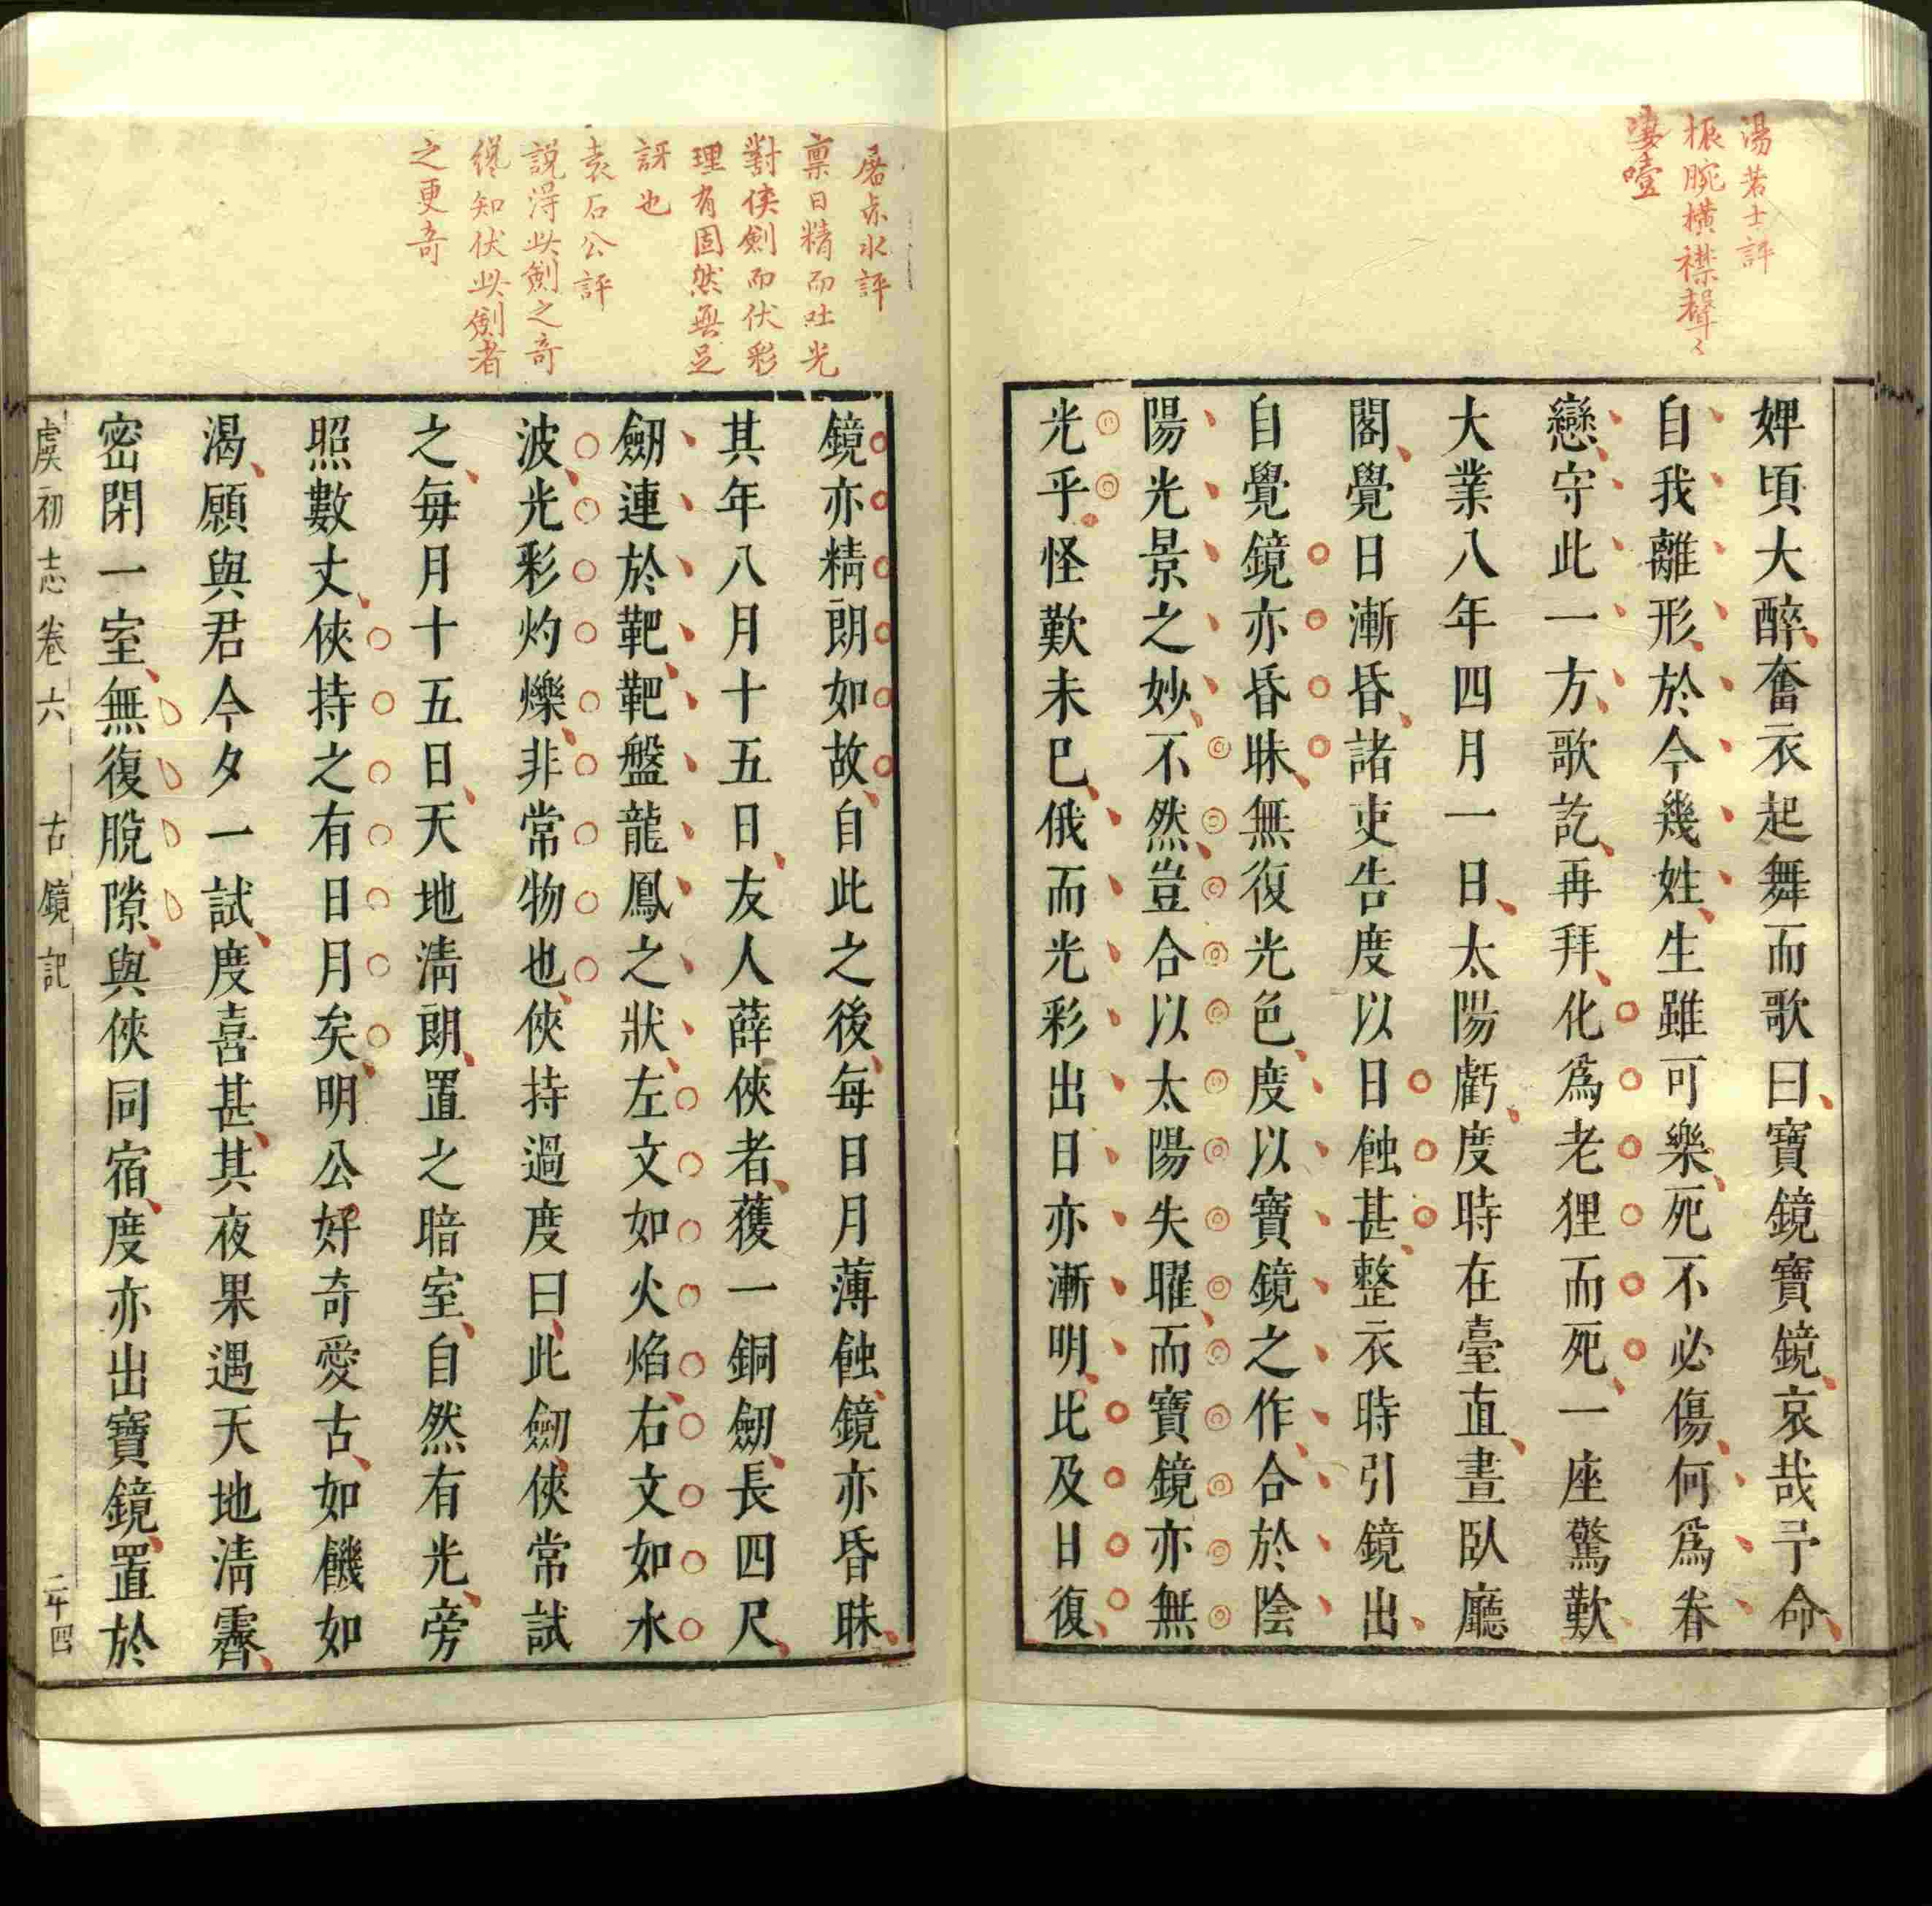 湯若士評
振腕橫襟聲々
淒噎
婢頃大醉奮衣起舞而歌曰寶鏡寶鏡哀哉予命
自我離形於今幾姓生雖可樂死不必傷何爲眷
戀守此一方歌訖再拜化爲老狸而死一座驚歎
大業八年四月一日太陽虧度時在臺直晝臥廳
閣覺日漸昏諸吏告度以日蝕甚整衣時引鏡出
自覺鏡亦昏昧無復光色度以寶鏡之作合於陰
陽光景之妙不然豈合以太陽失曜而寶鏡亦無
光乎怪歎未已俄而光彩出日亦漸明比及日復
屠赤水評
稟日精而吐光
對俠劍而伏彩
理有固然無足
訝也
袁石公評
說得此劍之奇
纔知伏此劍者
之更奇
鏡亦精朗如故自此之後每日月薄蝕鏡亦昏昧
其年八月十五日友人薛俠者獲一銅劒長四尺
劒連於靶靶盤龍鳳之狀左文如火焰右文如水
波光彩灼爍非常物也俠持過度曰此劒俠常試
之每月十五日天地淸朗置之暗室自然有光旁
照數丈俠持之有日月矣明公好奇愛古如饑如
渴願與君今夕一試度喜甚其夜果遇天地淸霽
密閉一室無復脫隙與俠同宿度亦出寶鏡置於
虞初志卷六 古鏡記 二十四